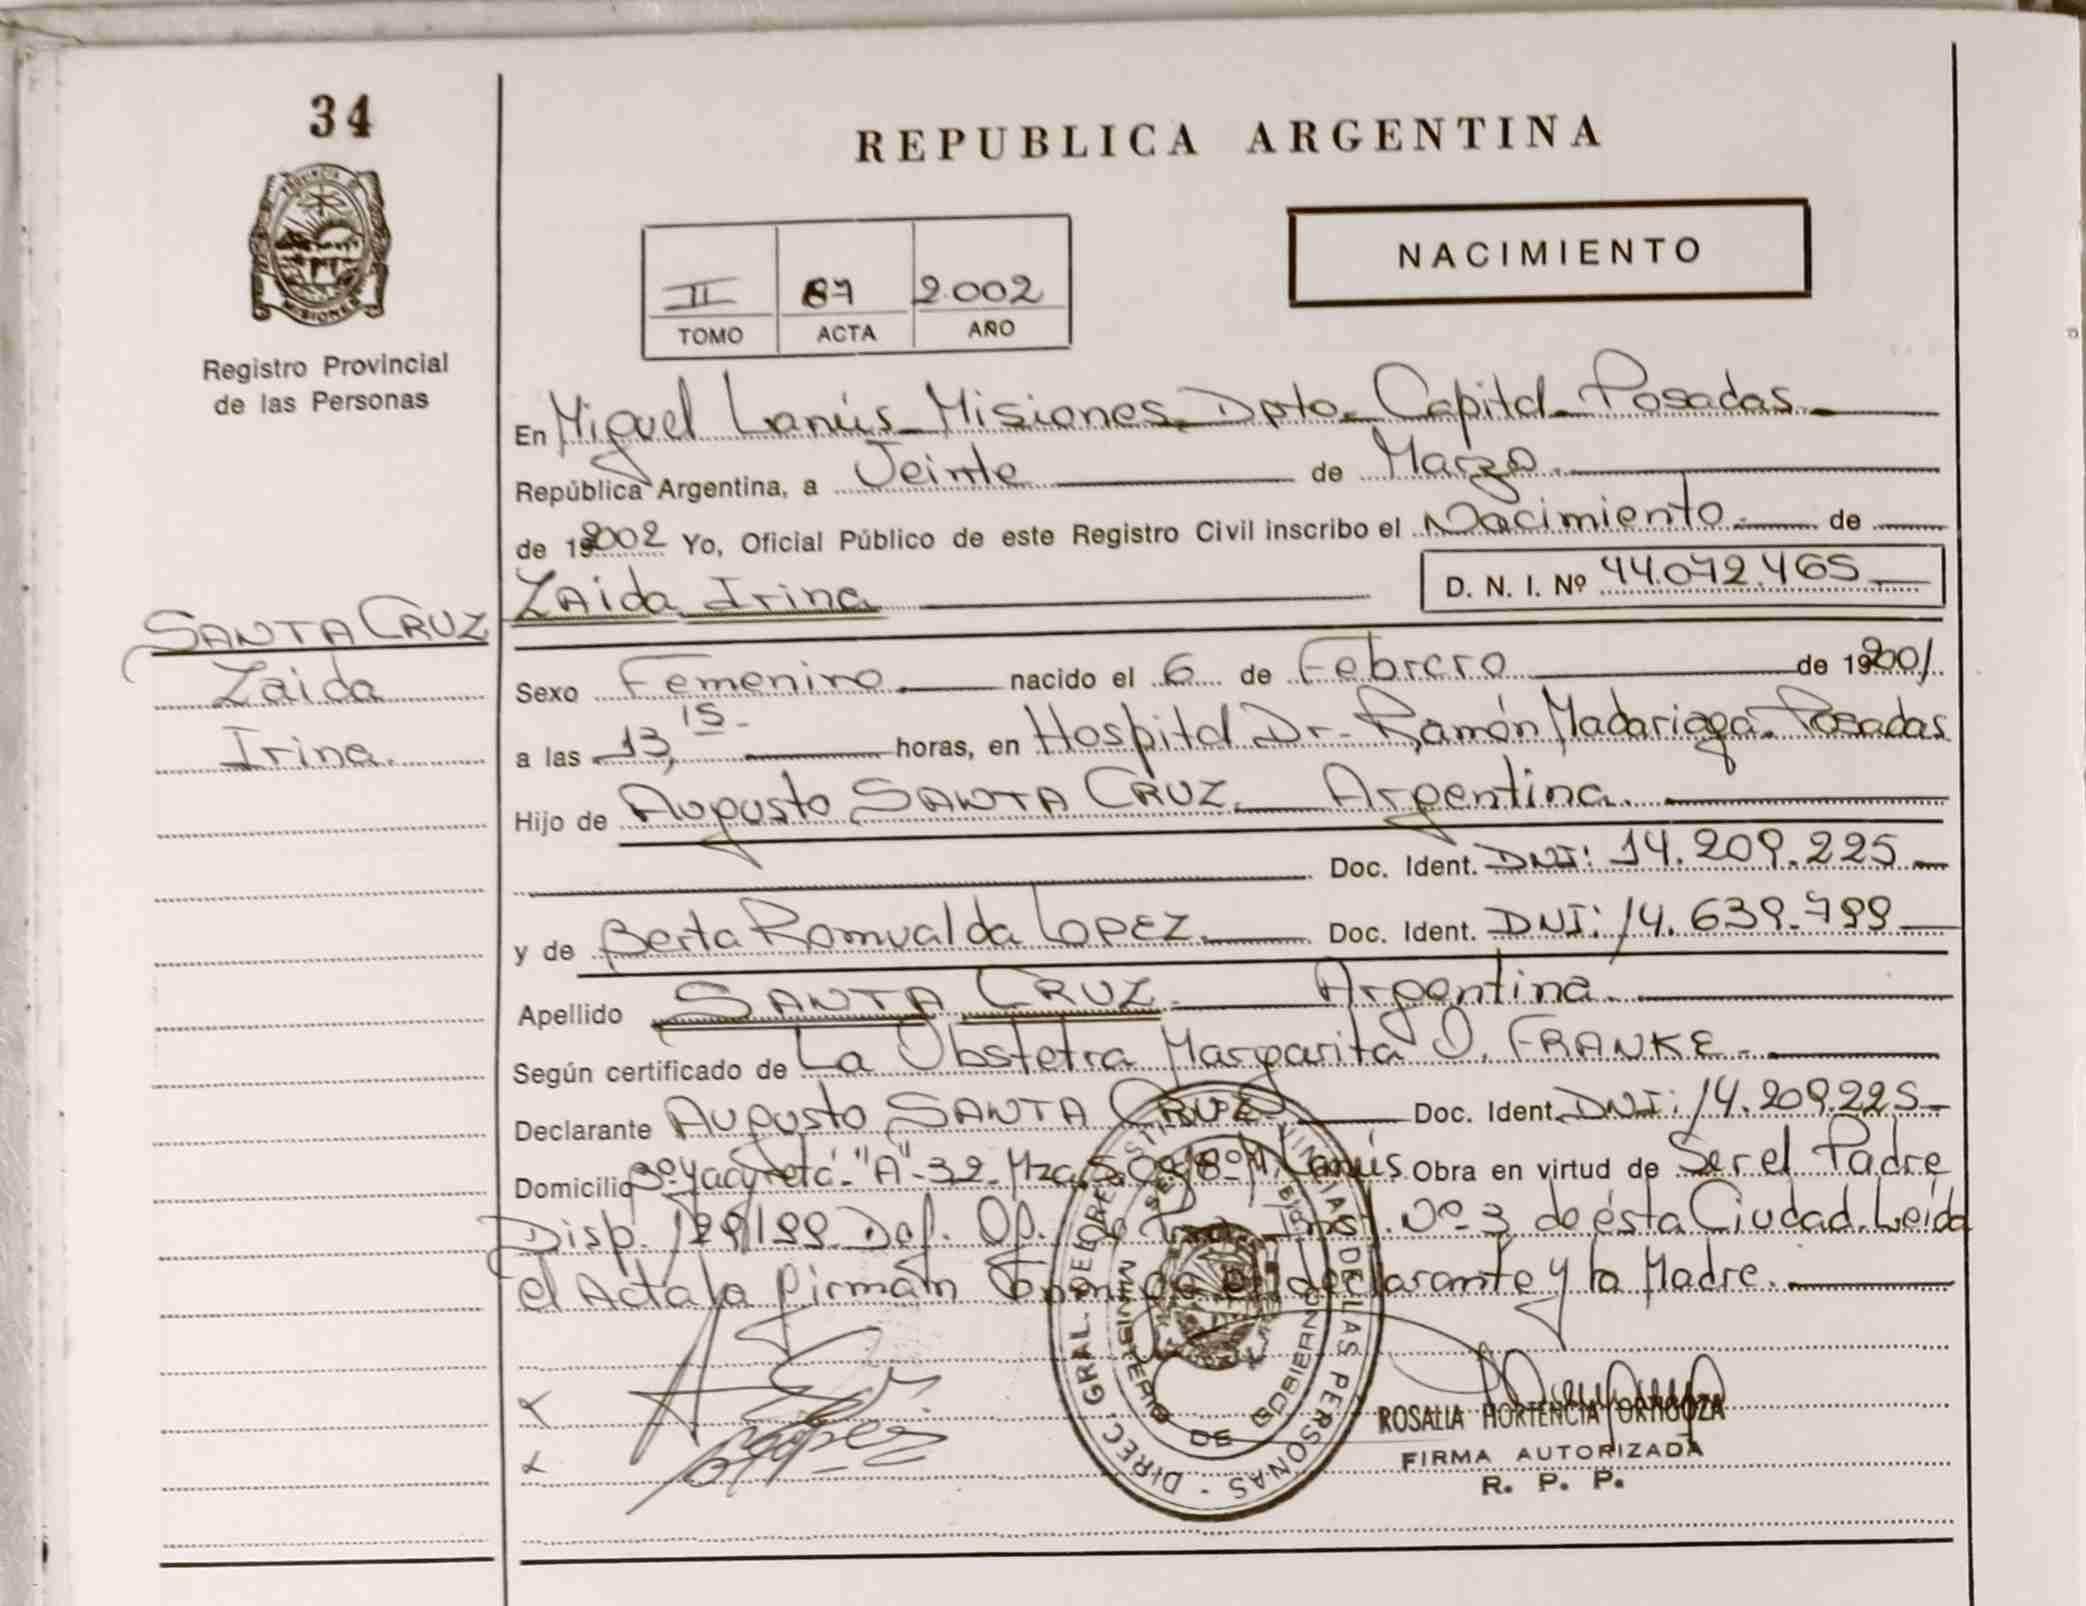 34
REPUBLICA ARGENTINA
PROVINCIA DE
MISIONES
Registro Provincial
de las Personas
NACIMIENTO
II 87 2.002
TOMO ACTA AÑO
En Miguel Lanús - Misiones - Dpto - Capital - Posadas -
República Argentina, a Veinte de Marzo.
de 2002 Yo, Oficial Público de este Registro Civil inscribo el Nacimiento. - de
Zaida Irina D. N. I. Nº 44.072.465
SANTA CRUZ
Zaida
Irina.
Sexo Femenino. nacido el 6 de Febrero de 2001.
a las 13,15 - horas, en Hospital Dr - Ramón Madariaga. Posadas
Hijo de Augusto SANTA CRUZ. Argentina.
Doc. Ident. DNI: 14.209.225 -
y de Berta Romualda LOPEZ. Doc. Ident. DNI: 14.639.799
Apellido SANTA CRUZ. Argentina.
Según certificado de La Obstetra Margarita D. FRANKE. -
Declarante Augusto SANTA CRUZ Doc. Ident. DNI: 14.209.225 -
Domicilio Bº Yacyretá - "A" - 32 - Mza. Lanús Obra en virtud de Ser el Padre
Disp. 129/99. Def. Of. de Inst. Nº 3 de ésta Ciudad. Leída
el Acta la firman el declarante y la Madre.
DIREC. GRAL. DEL REGISTRO PROVINCIAL DE LAS PERSONAS -
MINISTERIO DE GOBIERNO
ROSALIA HORTENCIA ORTIGOZA
FIRMA AUTORIZADA
R. P. P.